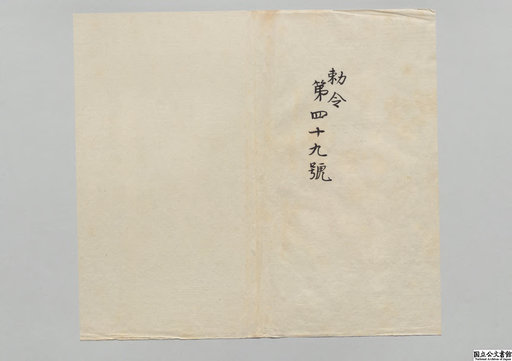 勅令
第四十九號
国立公文書館
National Archives of Japan